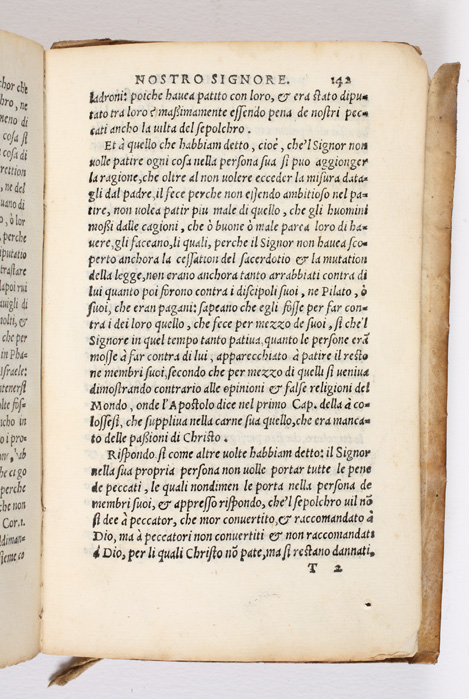 NOSTRO SIGNORE. 142
ladroni: poiche hauea patito con loro, & era stato dipu-
tato tra loro è maßimamente essendo pena de nostri pec-
cati ancho la uilta del sepolchro.
Et à quello che habbiam detto, cioè, che'l Signor non
uolle patire ogni cosa nella persona sua si puo aggionger
la ragione, che oltre al non uolere ecceder la misura data-
gli dal padre, il fece perche non essendo ambitioso nel pa-
tire, non uolea patir piu male di quello, che gli huomini
moßi dalle cagioni, che ò buone ò male parea loro di ha-
uere, gli faceano, li quali, perche il Signor non hauea sco-
perto anchora la cessation del sacerdotio & la mutation
della legge, non erano anchora tanto arrabbiati contra di
lui quanto poi fōrono contra i discipoli suoi, ne Pilato, ò
suoi, che eran pagani: sapeano che egli fòsse per far con-
tra i dei loro quello, che fece per mezzo de suoi, sì che'l
Signore in quel tempo tanto patiua, quanto le persone erā
mosse à far contra di lui, apparecchiato à patire il resto
ne membri suoi, secondo che per mezzo di quelli si ueniua
dimostrando contrario alle opinioni & false religioni del
Mondo, onde l'Apostolo dice nel primo Cap. della à co-
lossesi, che suppliua nella carne sua quello, che era manca-
to delle paßioni di Christo.
Rispondo sì come altre uolte habbiam detto: il Signor
nella sua propria persona non uolle portar tutte le pene
de peccati, le quali nondimen le porta nella persona de
membri suoi, & appresso rispondo, che'l sepolchro uil nō
si dee à peccator, che mor conuertito & raccomandato à
Dio, ma à peccatori non conuertiti & non raccomandati
à Dio, per li quali Christo nō pate, ma si restano dannati.
T 2